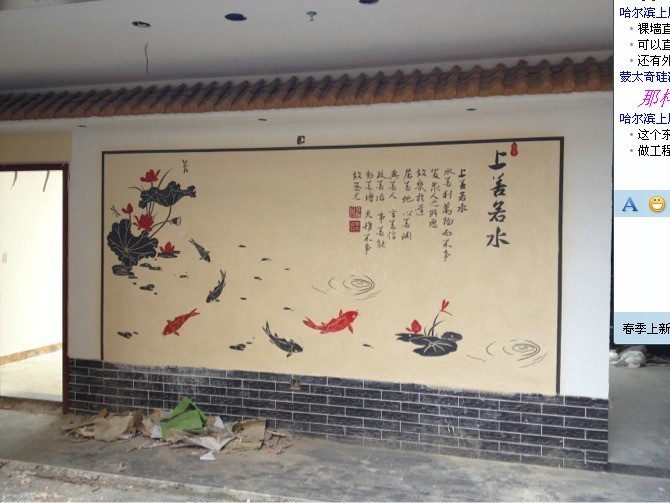 上善若水
上善若水
水善利萬物而不爭
處衆人之所惡
故幾於道
居善地 心善淵
與善人 言善信
政善治 事善能
動善時 夫惟不爭
故無尤
哈尔滨上
裸墙直
可以直
还有外
蒙太奇硅
那
哈尔滨上
这个东
做工程
A
春季上新